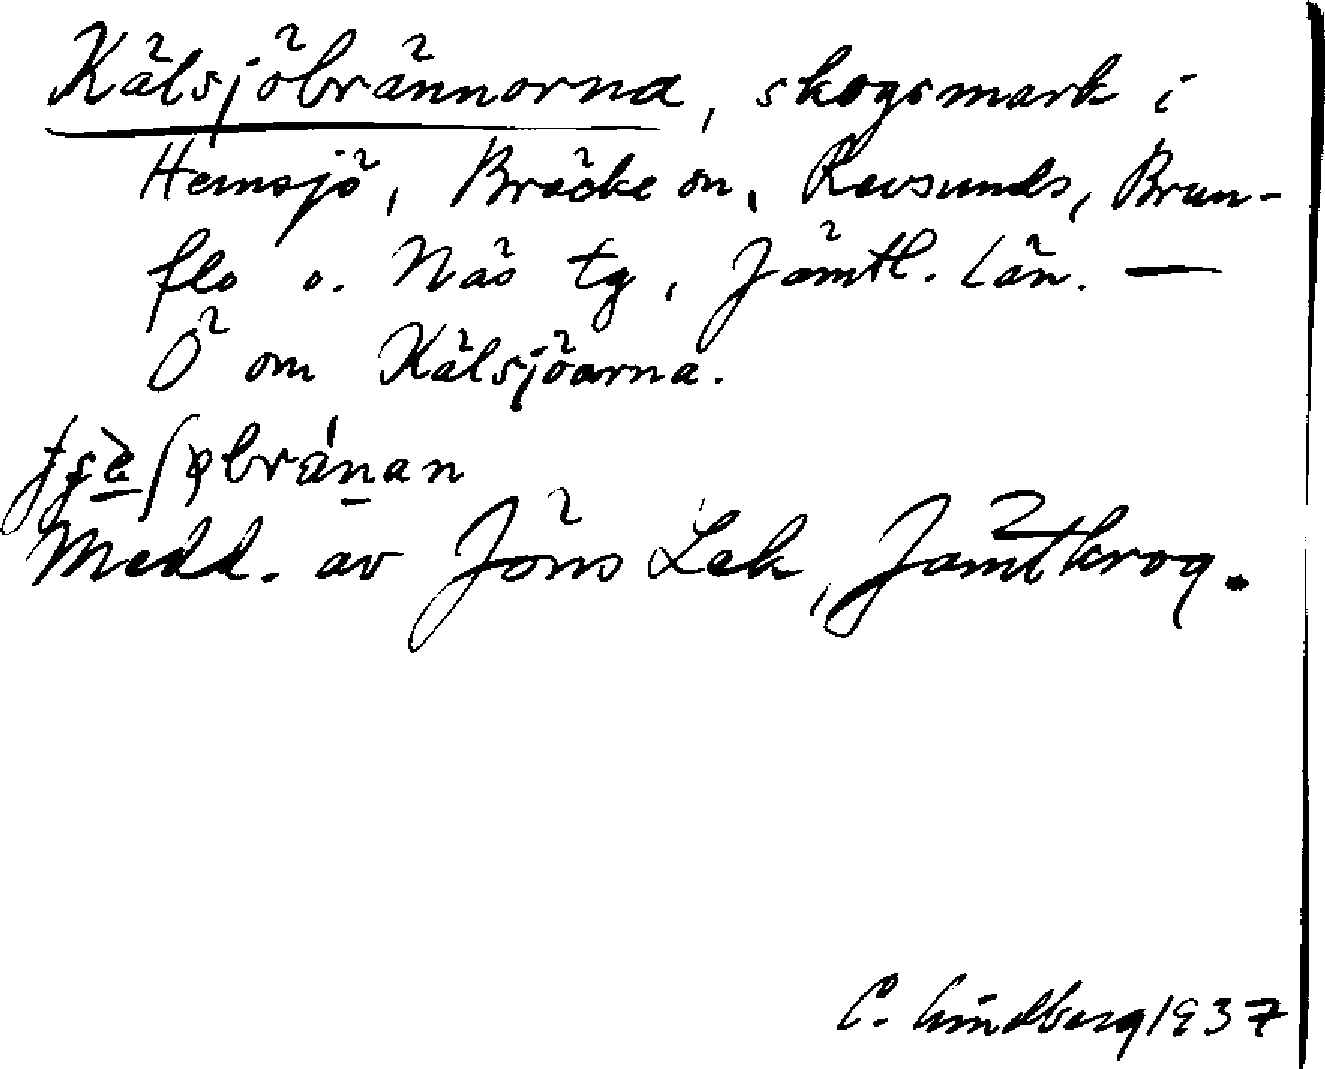 Kälsjöbrännorna, skogsmark i
Hemsjö, Bräcke sn, Revsunds, Brun-
flo o. Näs tg, Jämtl. län. —
Ö om Kälsjöarna.
Medd. av Jöns Lek, Jämtkrog.
C. Lindberg 1937